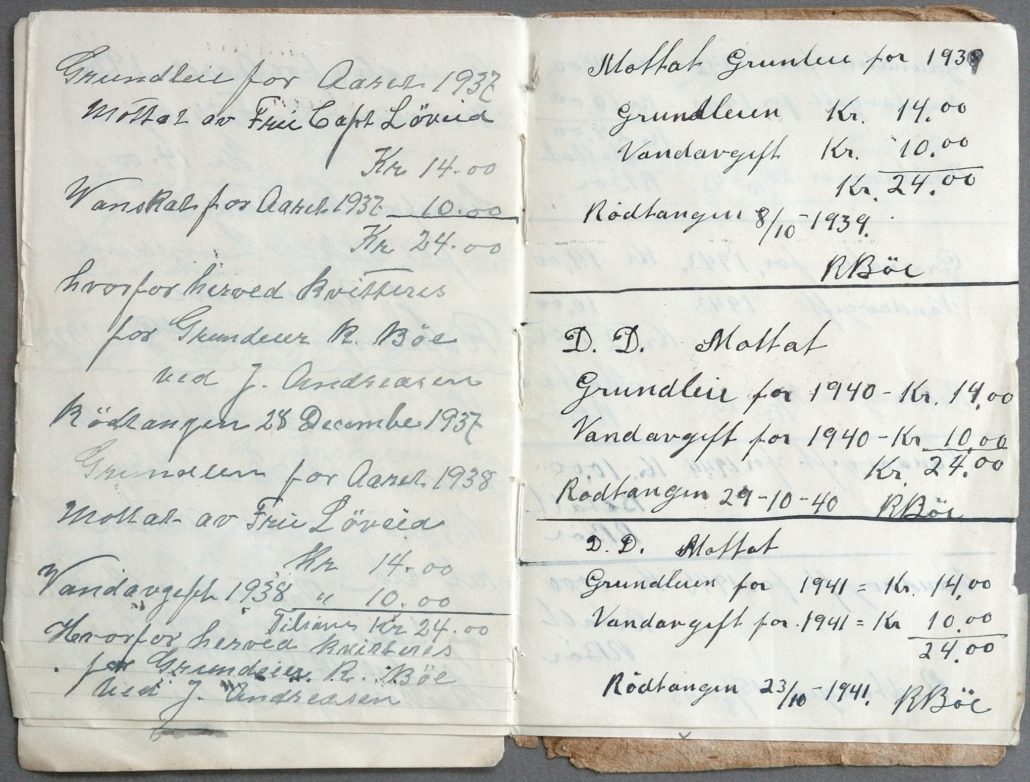 Grundleie for Aaret 1937
Mottat av Frü Capt Löveid
Kr 14.00
Vanskat for Aaret 1937 10.00
Kr 24.00
hvorfor herved kvitteres
for Grundeier R. Böe
ved J. Andreasen
Rödtangen 28 December 1937
Grundleien for Aaret 1938
Mottat av Frü Löveid
Kr 14.00
Vandavgift 1938 " 10.00
Tilsams Kr 24.00
Hvorfor herved kvitteres
for Grundeier R. Böe
ved J. Andreasen
Mottat Grunleie for 1939
Grundleien Kr. 14.00
Vandavgift Kr. 10.00
Kr. 24.00
Rödtangen 8/10-1939.
RBöe
D. D. Mottat
Grundleie for 1940 - Kr. 14,00
Vandavgift for 1940 - Kr 10,00
Kr. 24.00
Rödtangen 29-10-40 RBöe
D. D. Mottat
Grundleien for 1941 = Kr. 14,00
Vandavgift for 1941 = Kr 10.00
24,00
Rödtangen 23/10-1941. RBöe